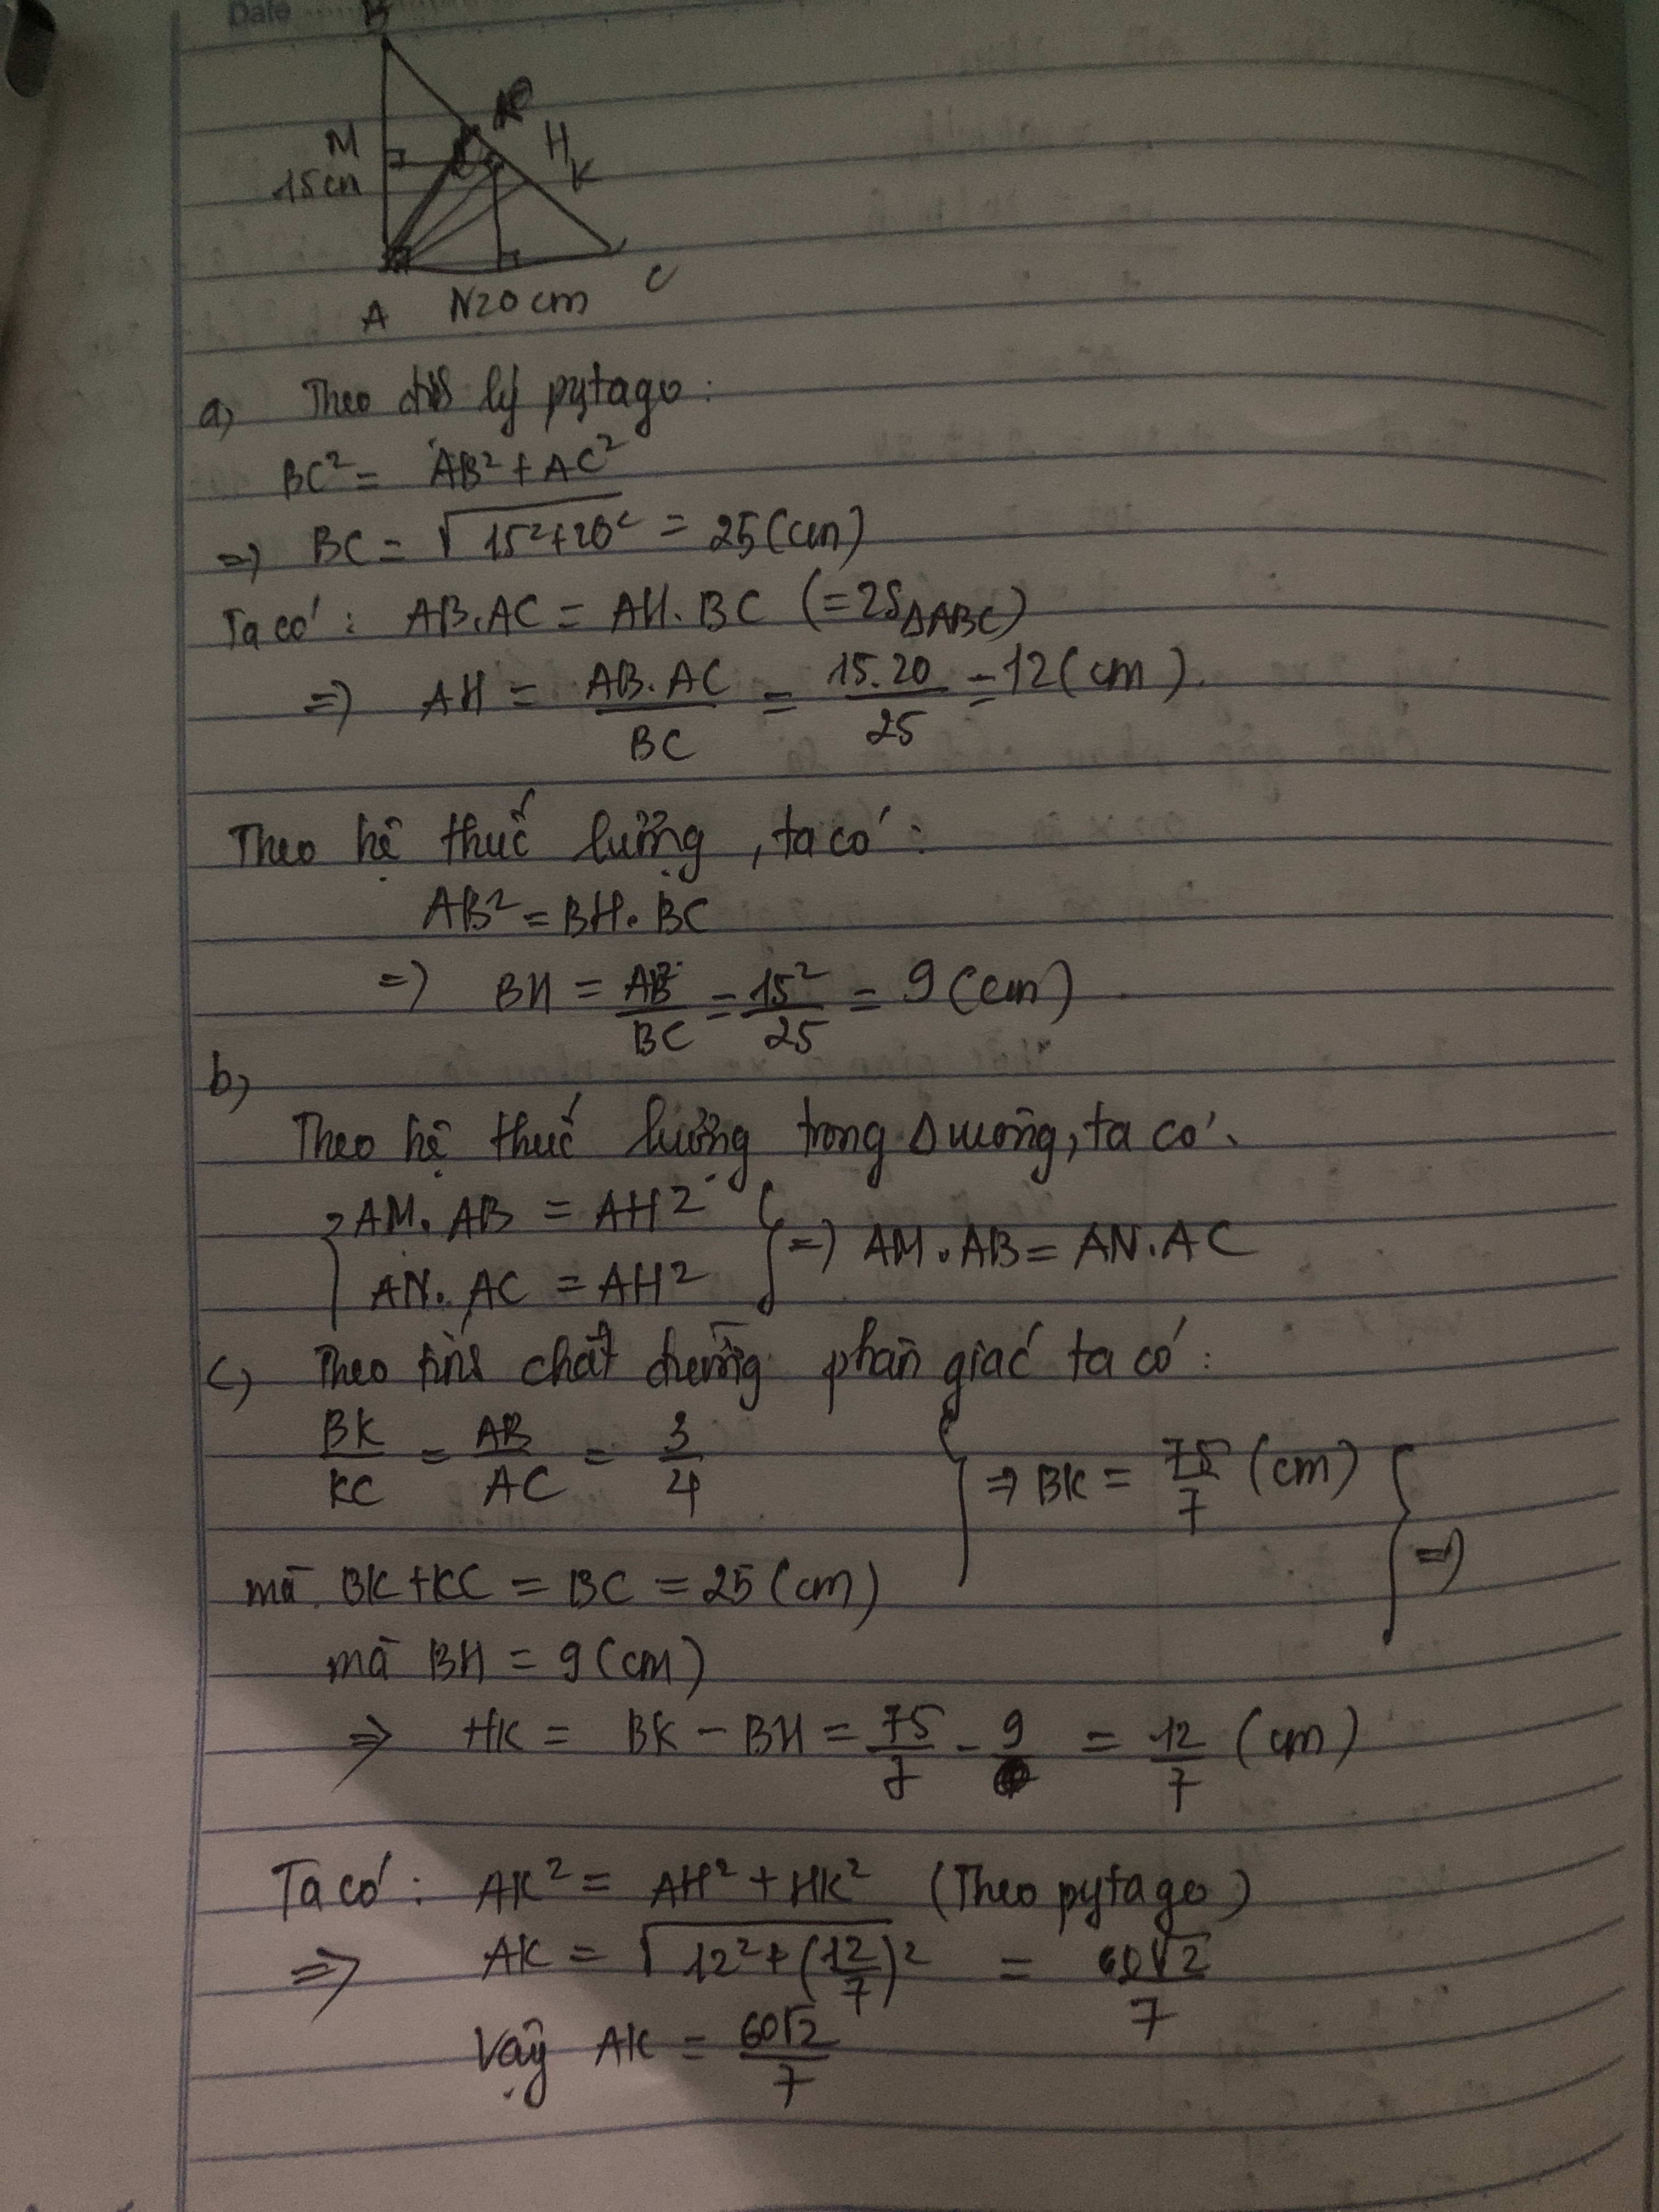 Date
B
M
H
K
15cm
A
N20 cm
C
a) Theo định lý pytago:
BC² = AB² + AC²
=> BC = √15²+20² = 25 (cm)
Ta có: AB.AC = AH.BC (=2SΔABC)
=> AH = AB.AC/BC = 15.20/25 = 12 (cm).
Theo hệ thức lượng, ta có:
AB² = BH.BC
=> BH = AB²/BC = 15²/25 = 9 (cm)
b)
Theo hệ thức lượng trong Δ vuông, ta có:
AM.AB = AH²
AN.AC = AH²
} => AM.AB = AN.AC
c) Theo tính chất đường phân giác ta có:
BK/KC = AB/AC = 3/4
mà BK+KC = BC = 25 (cm)
} => BK = 75/7 (cm) } =>
mà BH = 9 (cm)
=> HK = BK - BH = 75/7 - 9 = 12/7 (cm)
Ta có: AK² = AH² + HK² (Theo pytago)
=> AK = √12² + (12/7)² = 60√2/7
Vậy AK = 60√2/7